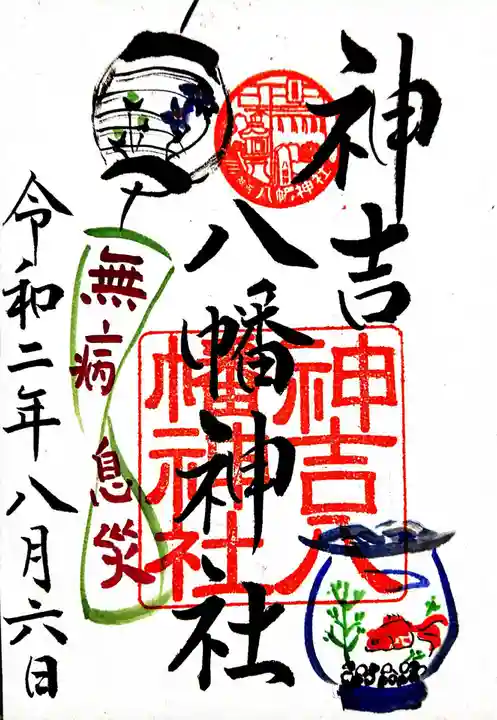 神吉
八幡神社
八幡神社
神吉八
幡神社
無病息災
令和二年八月六日